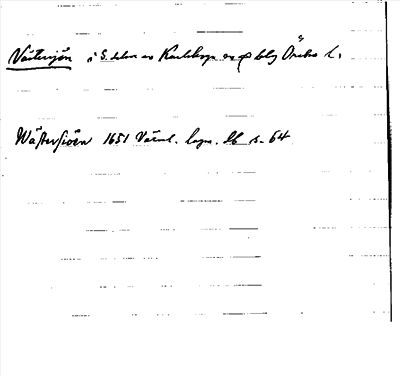 Västersjön i S. delen av Karlskoga sn o. blg Örebro l.
Wästersioen 1651 Värml. lagm. db s. 64